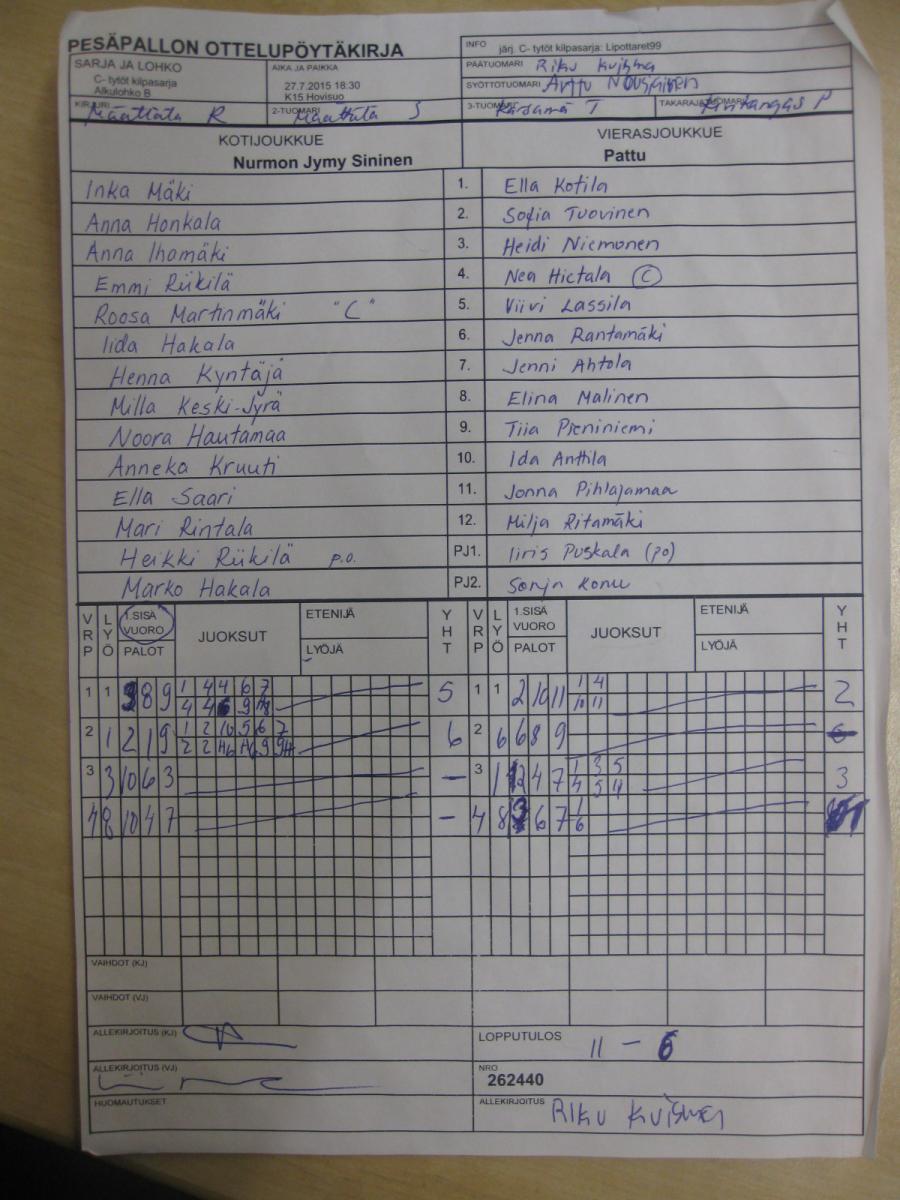 PESÄPALLON OTTELUPÖYTÄKIRJA
INFO järj. C- tytöt kilpasarja: Lipottaret99
SARJA JA LOHKO
C- tytöt kilpasarja
Alkulohko B
AIKA JA PAIKKA
27.7.2015 18:30
K15 Hovisuo
PÄÄTUOMARI Riku Kuisma
SYÖTTOTUOMARI Arttu Nousiainen
KIRJURI Määttälä R
2-TUOMARI Määttälä S
3-TUOMARI Karsama T
TAKARAJATUOMARI P
KOTIJOUKKUE
Nurmon Jymy Sininen
VIERASJOUKKUE
Pattu
Inka Mäki 1. Ella Kotila
Anna Honkala 2. Sofia Tuovinen
Anna Ihomäki 3. Heidi Niemonen
Emmi Riikilä 4. Nea Hietala (C)
Roosa Martinmäki "C" 5. Viivi Lassila
Iida Hakala 6. Jenna Rantamäki
Henna Kyntäjä 7. Jenni Ahtola
Milla Keski-Jyrä 8. Elina Malinen
Noora Hautamaa 9. Tiia Pieniniemi
Anneka Kruuti 10. Ida Anttila
Ella Saari 11. Jonna Pihlajamaa
Mari Rintala 12. Milja Ritamäki
Heikki Riikilä p.o. PJ1. Iiris Puskala (po)
Marko Hakala PJ2. Sonja Konu
VRP LYÖ 1.SISÄ VUORO PALOT JUOKSUT ETENIJÄ LYÖJÄ YHT VRP LYÖ 1.SISÄ VUORO PALOT JUOKSUT ETENIJÄ LYÖJÄ YHT
1 1 3 8 9 1 4 4 6 7 5 1 1 2 10 11 1 4 2
4 4 6 9 10 11
2 1 2 1 9 1 2 10 5 6 7 6 2 6 6 8 9
2 2 9
3 3 10 6 3 - 3 1 2 4 7 1 3 5 3
4 5
4 8 10 4 7 - 4 8 3 6 7 1 1
6
VAIHDOT (KJ)
VAIHDOT (VJ)
ALLEKIRJOITUS (KJ)
LOPPUTULOS 11 - 6
ALLEKIRJOITUS (VJ)
NRO
262440
HUOMAUTUKSET
ALLEKIRJOITUS Riku Kuisma